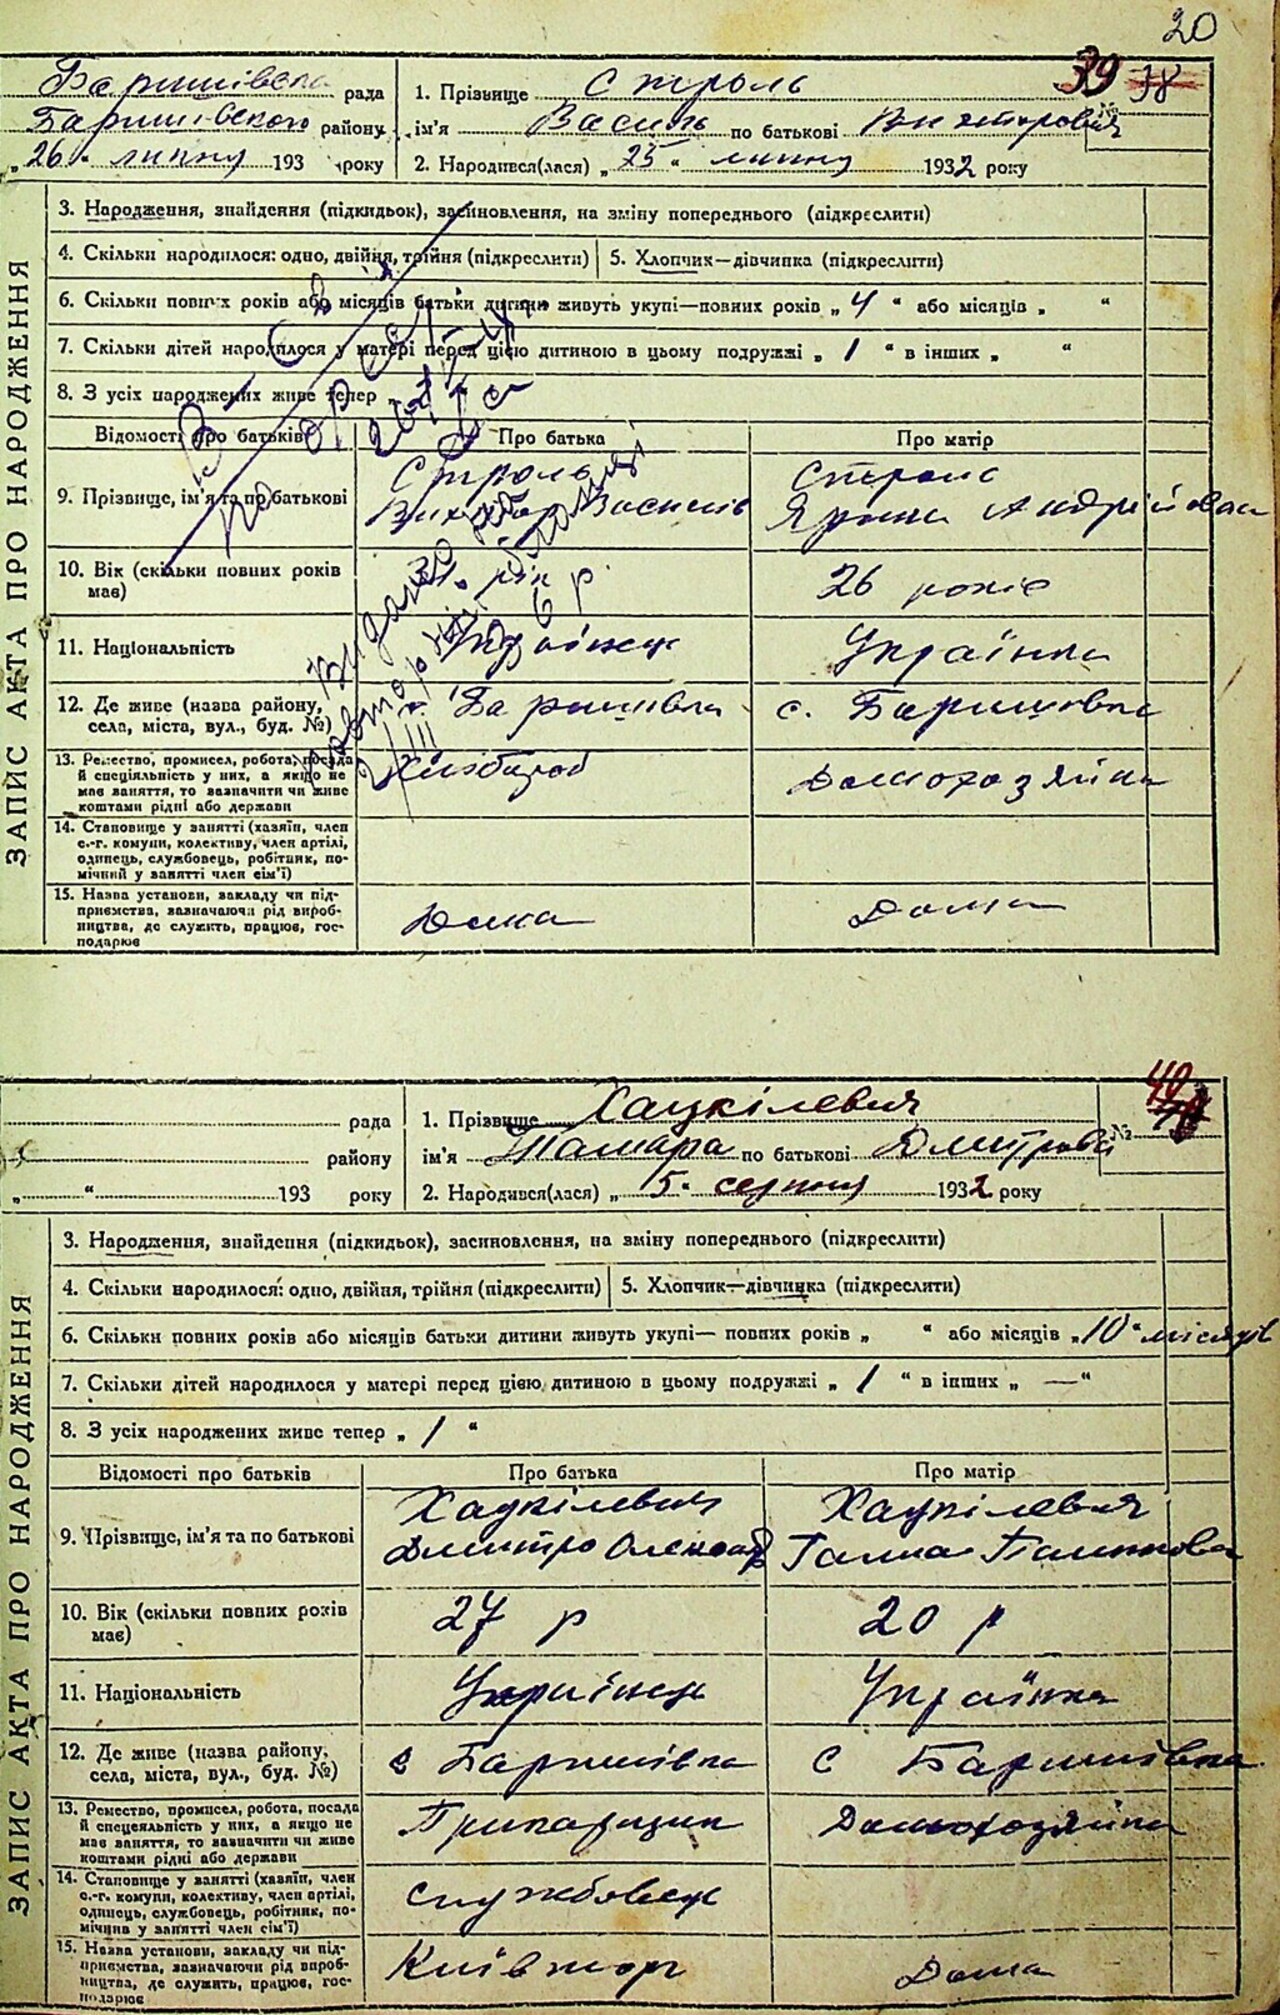 20
Баришівська рада
Баришівського району
„26“ липня 193 року
39 38
№
1. Прізвище Строль
ім'я Василь по батькові Викторович
2. Народився(лася) „25“ липня 1932 року
ЗАПИС АКТА ПРО НАРОДЖЕННЯ
3. Народження, знайдення (підкидьок), засиновлення, на зміну попереднього (підкреслити)
4. Скільки народилося: одно, двійня, трійня (підкреслити) 5. Хлопчик—дівчинка (підкреслити)
6. Скільки повних років або місяців батьки дитини живуть укупі—повних років „4“ або місяців „ “
7. Скільки дітей народилося у матері перед цією дитиною в цьому подружжі „1“ в інших „ “
8. З усіх народжених живе тепер „
Відомості про батьків Про батька Про матір
9. Прізвище, ім'я та по батькові
Строль
Василів
Ярина Андрійовна
10. Вік (скільки повних років має)
26 років
11. Національність
Українка
Видано
12. Де живе (назва району, села, міста, вул., буд. №)
Баришівка
с. Баришовка
13. Ремество, промисел, робота, посада й спеціяльність у них, а якщо не має заняття, то зазначити чи живе коштами рідні або держави
Хлібороб
Домохозяйка
14. Становище у занятті (хазяїн, член с.-г. комуни, колективу, член артілі, одинець, службовець, робітник, помічний у занятті член сім'ї)
15. Назва установи, закладу чи підприємства, зазначаючи рід виробництва, де служить, працює, господарює
Дома
ЗАПИС АКТА ПРО НАРОДЖЕННЯ
рада
району
„ “ 193 року
40
№
1. Прізвище Хацкілевич
ім'я Тамара по батькові Дмитрова
2. Народився(лася) „5“ серпня 1932 року
3. Народження, знайдення (підкидьок), засиновлення, на зміну попереднього (підкреслити)
4. Скільки народилося: одно, двійня, трійня (підкреслити) 5. Хлопчик—дівчинка (підкреслити)
6. Скільки повних років або місяців батьки дитини живуть укупі— повних років „ “ або місяців „10“ місяців
7. Скільки дітей народилося у матері перед цією дитиною в цьому подружжі „1“ в інших „—“
8. З усіх народжених живе тепер „1“
Відомості про батьків Про батька Про матір
9. Прізвище, ім'я та по батькові
Хацкілевич
Дмитро Олександ
Хацкілевич
Галина
10. Вік (скільки повних років має)
27 р
20 р
11. Національність
Українець
Українка
12. Де живе (назва району, села, міста, вул., буд. №)
с Баришівка
с Баришівка
13. Ремество, промисел, робота, посада й спецеяльність у них, а якщо не має заняття, то зазначити чи живе коштами рідні або держави
Прикащик
Домохозяйка
14. Становище у занятті (хазяїн, член с.-г. комуни, колективу, член артілі, одинець, службовець, робітник, помічний у занятті член сім'ї)
службовець
15. Назва установи, закладу чи підприємства, зазначаючи рід виробництва, де служить, працює, господарює
Київторг
Дома